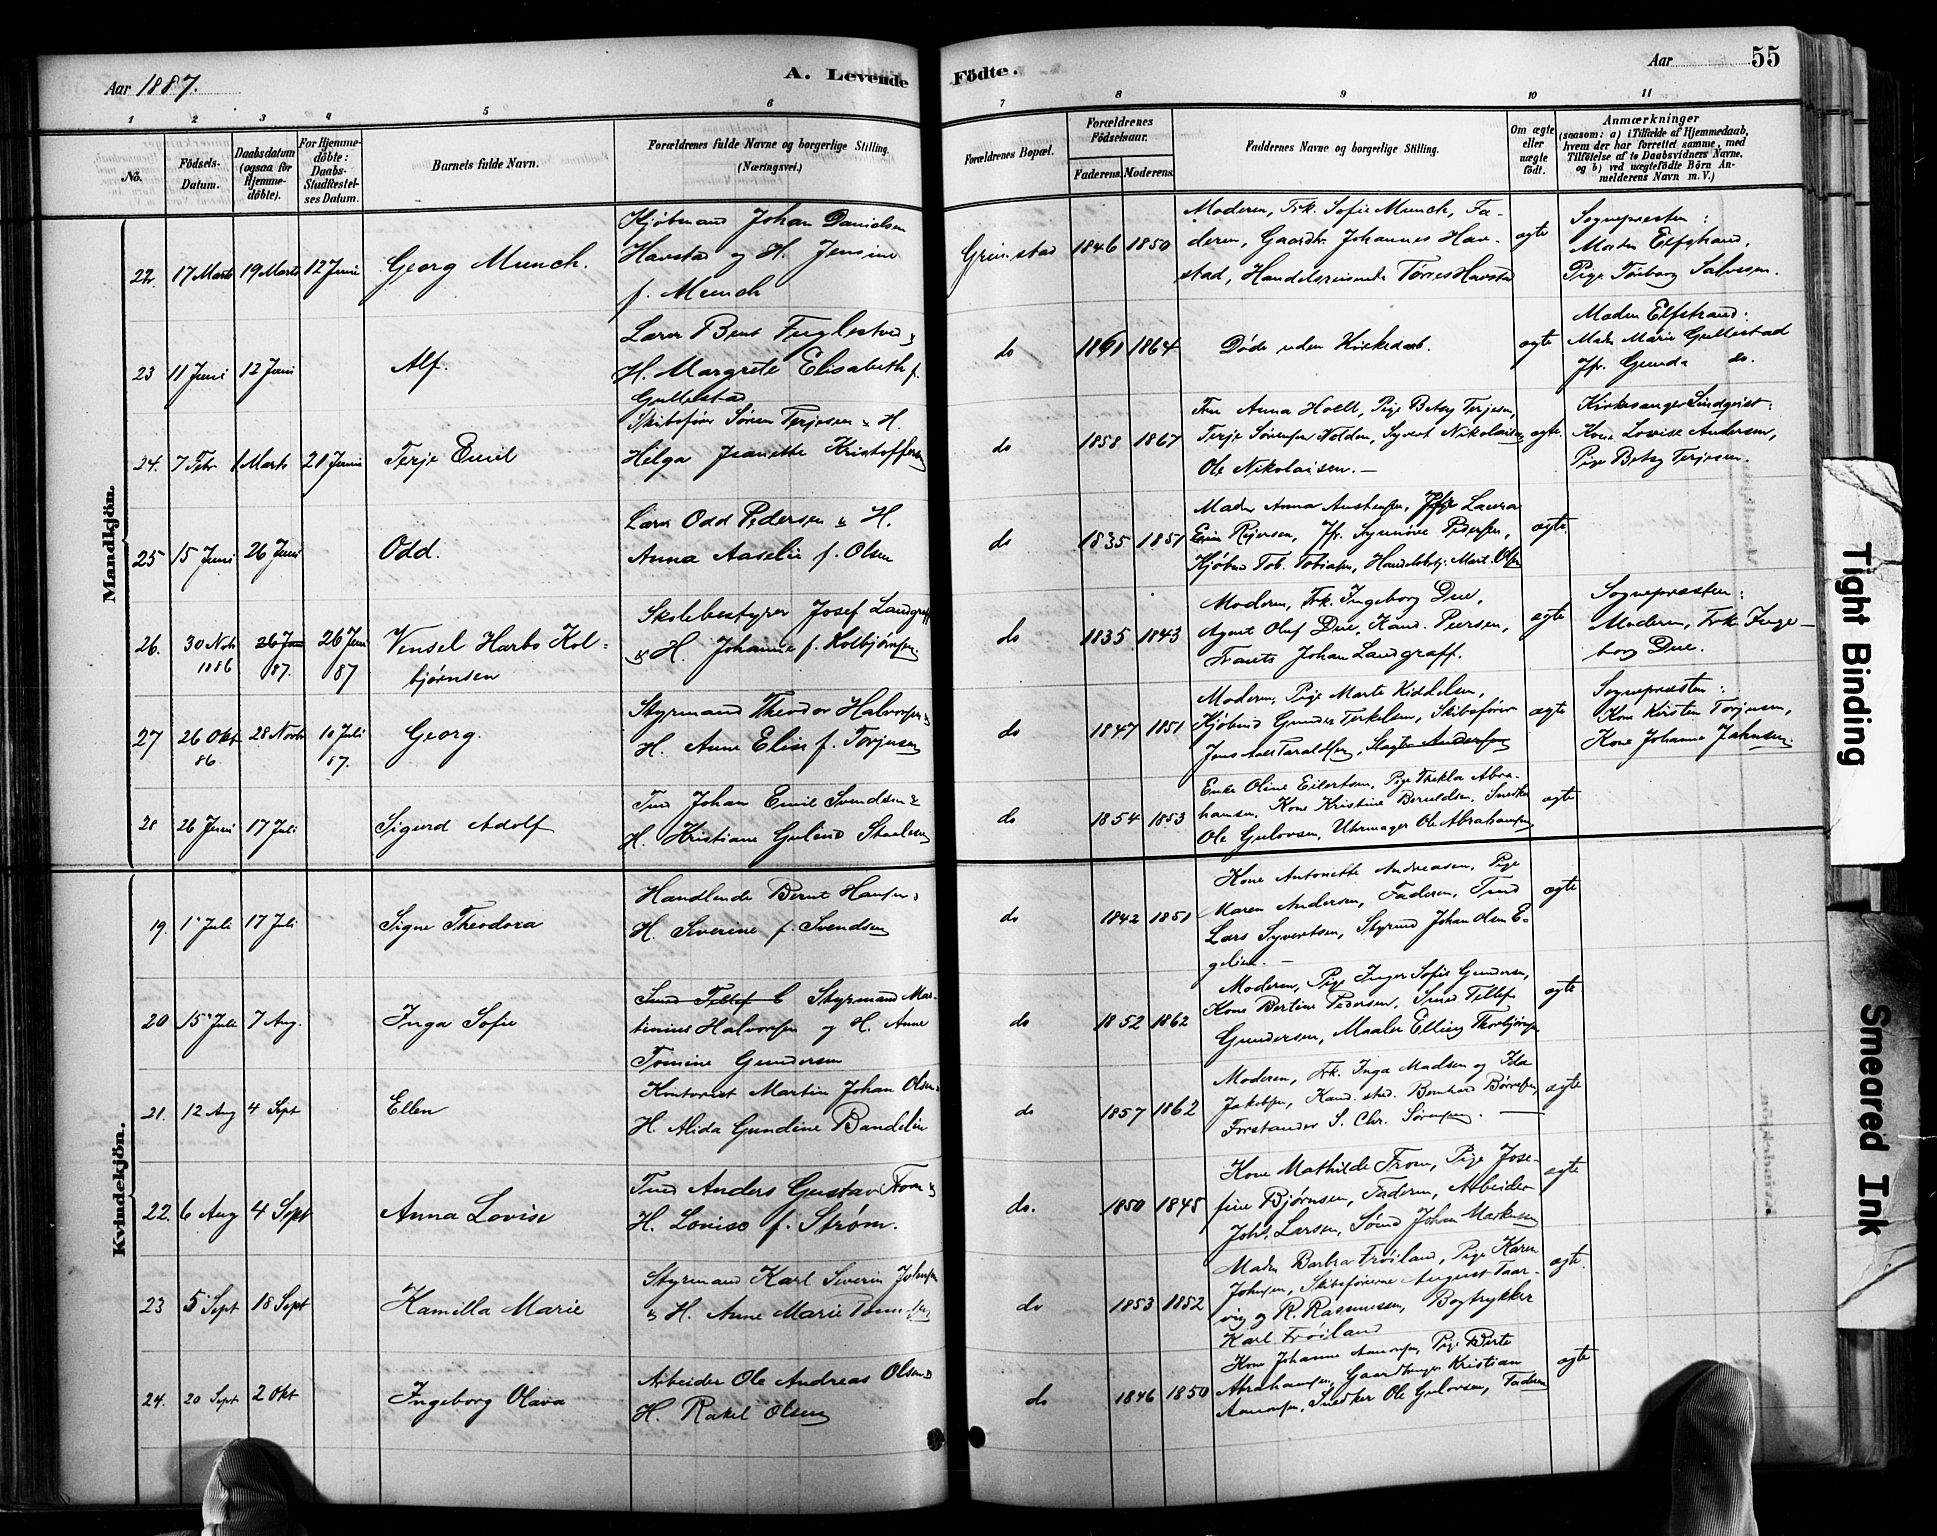 Aar 1887.
A. Levende
Födte.
Aar
55
1 2 3 4 5 6 7 8 9 10 11
No.
Födsels-
Datum.
Daabsdatum
(ogsaa for
Hjemme-
döbte).
For Hjemme-
döbte:
Daabs-
Stadfæstel-
ses Datum.
Barnets fulde Navn.
Forældrenes fulde Navne og borgerlige Stilling.
(Næringsvei.)
Forældrenes Bopæl.
Forældrenes
Födselsaar.
Faderens. Moderens.
Faddernes Navne og borgerlige Stilling.
Om ægte
eller
uægte
födt.
Anmærkninger
(saasom: a) i Tilfælde af Hjemmedaab,
hvem der har forrettet samme, med
Tilföielse af to Daabsvidners Navne,
og b) ved uægtefödte Börn An-
melderens Navn m. V.)
Mandkjön.
22. 17 Marts 19 Marts 12 Juni Georg Munch.
Kjøbmand Johan Danielsen
Havstad og H. Jensine
f. Munch
Grimstad 1846 1850
Moderen, Frk. Sofie Munch, Fa-
deren, Gaardbr. Johannes Hav-
stad, Handelsreisende Tørres Havstad
ægte
Sognepresten:
Maden Elfstrand,
Pige Torborg Salvesen.
23 11 Juni 12 Juni Alf.
Lærer Bent Fuglestved &
H. Margrete Elisabeth f.
Gullestad
do 1861 1864
Døde uden Kirkedaab.
ægte
Maden Elfstrand:
Mad. Marie Gullestad
Jfr. Gunda do.
24. 7 Febr 1 Marts 21 Juni Terje Emil
Skibsfører Søren Terjesen & H.
Helga Jeanette Kristoffersen
do 1858 1867
Frue Anna Holll, Pige Betsy Terjesen,
Terje Sørensen Holden, Syvert Nikolaisen,
Ole Nikolaisen. —
ægte.
Kirkesanger Lindqvist:
Kone Lovise Andersen,
Pige Betsy Terjesen.
25 15 Juni 26 Juni Odd.
Lærer Odd Pedersen & H.
Anna Aaselie f. Olsen
do 1835 1851
Maden Anna Austensen, Pige Laura
Reiersen, Jfr. Synnöve Pedersen,
Kjøbmd Tob. Tobiasen, Handelsbetj. Mart. Olsen
ægte.
26. 30 Novb 1886 26 Juni 87. 26 Juni 87 Vensel Harbo Kol-
bjørnsen
Skolebestyrer Josef Landgraff
& H. Johanne f. Kolbjørnsen.
do 1835 1843
Moderen, Frk. Ingeborg Due,
Agent Oluf Due, Kand. Peersen,
Frants Johan Landgraff.
ægte
Sognepresten:
Moderen, Frk. Inge-
borg Due.
27 26 Okt 86 28 Novb 10 Juli 87. Georg.
Styrmand Theodor Halvorsen &
H. Anne Elise f. Torjusen
do 1847 1851
Moderen, Pige Marte Kiddelsen,
Kjøbmd Gunder Terkelsen, Skibsfører
Jens Aall Taraldsen, Slagter Andersen
ægte
Sognepresten:
Kone Kirsten Torjusen,
Kone Johanne Jahnsen.
28 26 Juni 17 Juli Sigurd Adolf
Tmd Johan Emil Svendsen &
H. Kristiane Guline Staalesen
do 1854 1853
Enke Oline Eilertsen, Pige Thekla Abra-
hamsen. Kone Kristine Bernldsen, Snedker
Ole Gulovsen, Uhrmager Ole Abrahamsen
ægte
Kvindekjön.
19. 1 Juli 17 Juli Signe Theodora
Handlende Bernt Hansen &
H. Severine f. Svendsen
do 1842 1851
Kone Antonette Andreasen, Pige
Maren Andersen, Faderen, Tmd
Lars Syvertsen, Styrmd Johan Olsen E-
geline. —
ægte
20 15 Juli 7 Aug. Inga Sofie
Smed Tellef G Styrmand Mar-
tinius Halvorsen og H. Anne
Tomine Gundersen
do 1852 1862
Moderen, Pige Inger Sofie Gundersen,
Kone Bertine Pedersen, Smed Tellef
Gundersen, Maaler Elling Thorbjørnsen
ægte
21. 12 Aug 4 Sept Ellen
Kontorist Martin Johan Olsen &
H. Alida Gundine Bandelin
do 1857 1862
Moderen, Frk. Inga Madsen og Ida
Jakobsen, Kand. stud. Bernhard Børresen,
Forstander S. Chr. Sørensen. —
ægte
22. 6 Aug 4 Sept Anna Lovise
Tmd Anders Gustav From &
H. Lovise f. Strøm.
do. 1850 1845
Kone Mathilde From, Pige Jose-
fine Bjørnsen, Faderen, Arbeider
Johs. Larsen, Sømd Johan Markusen
ægte
23 5 Sept 18 Sept Kamilla Marie
Styrmand Karl Severin Johnsen
& H. Anne Marie
do 1853 1852
Maden Barbra Frøiland, Pige Karen
Johnsen, Skibsførerne August Taar-
vig og R. Rasmussen, Bogtrykker
Karl Frøiland
ægte.
24. 20 Sept 2 Okt Ingeborg Olava
Arbeider Ole Andreas Olsen &
H. Rakel Olsen
do 1846 1850
Kone Johanne Aanonsen, Pige Berte
Abrahamsen, Gaardbruger Kristian
Aanonsen, Snedker Ole Gulovsen, Faderen
ægte
Tight Binding
Smeared Ink